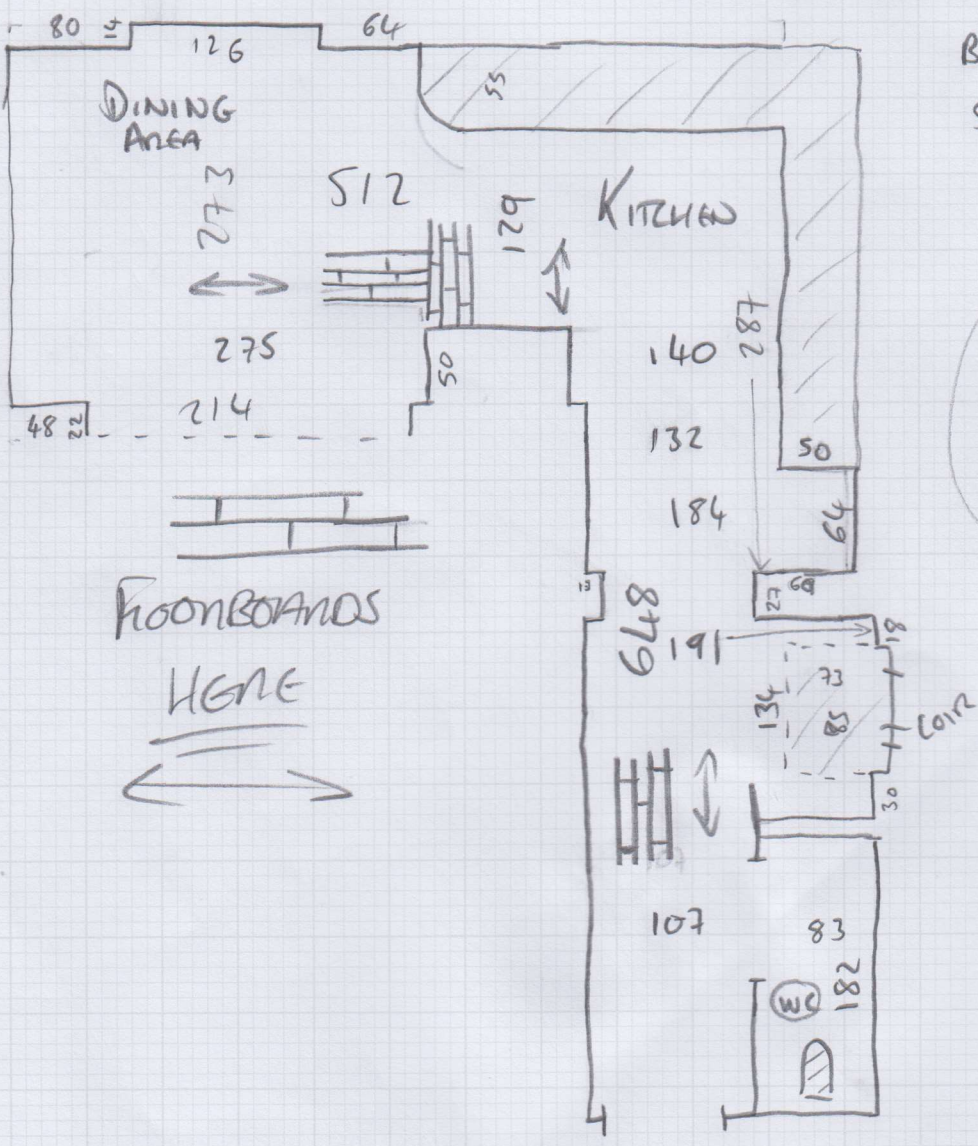 80 14 126 64
B
DINING
AREA
55
273
512
129
KITCHEN
275
50
140
287
48 22
214
132
50
184
64
FLOORBOARDS
HERE
60
27
648
191
18
134
73
85
COIR
30
107
83
182
WC